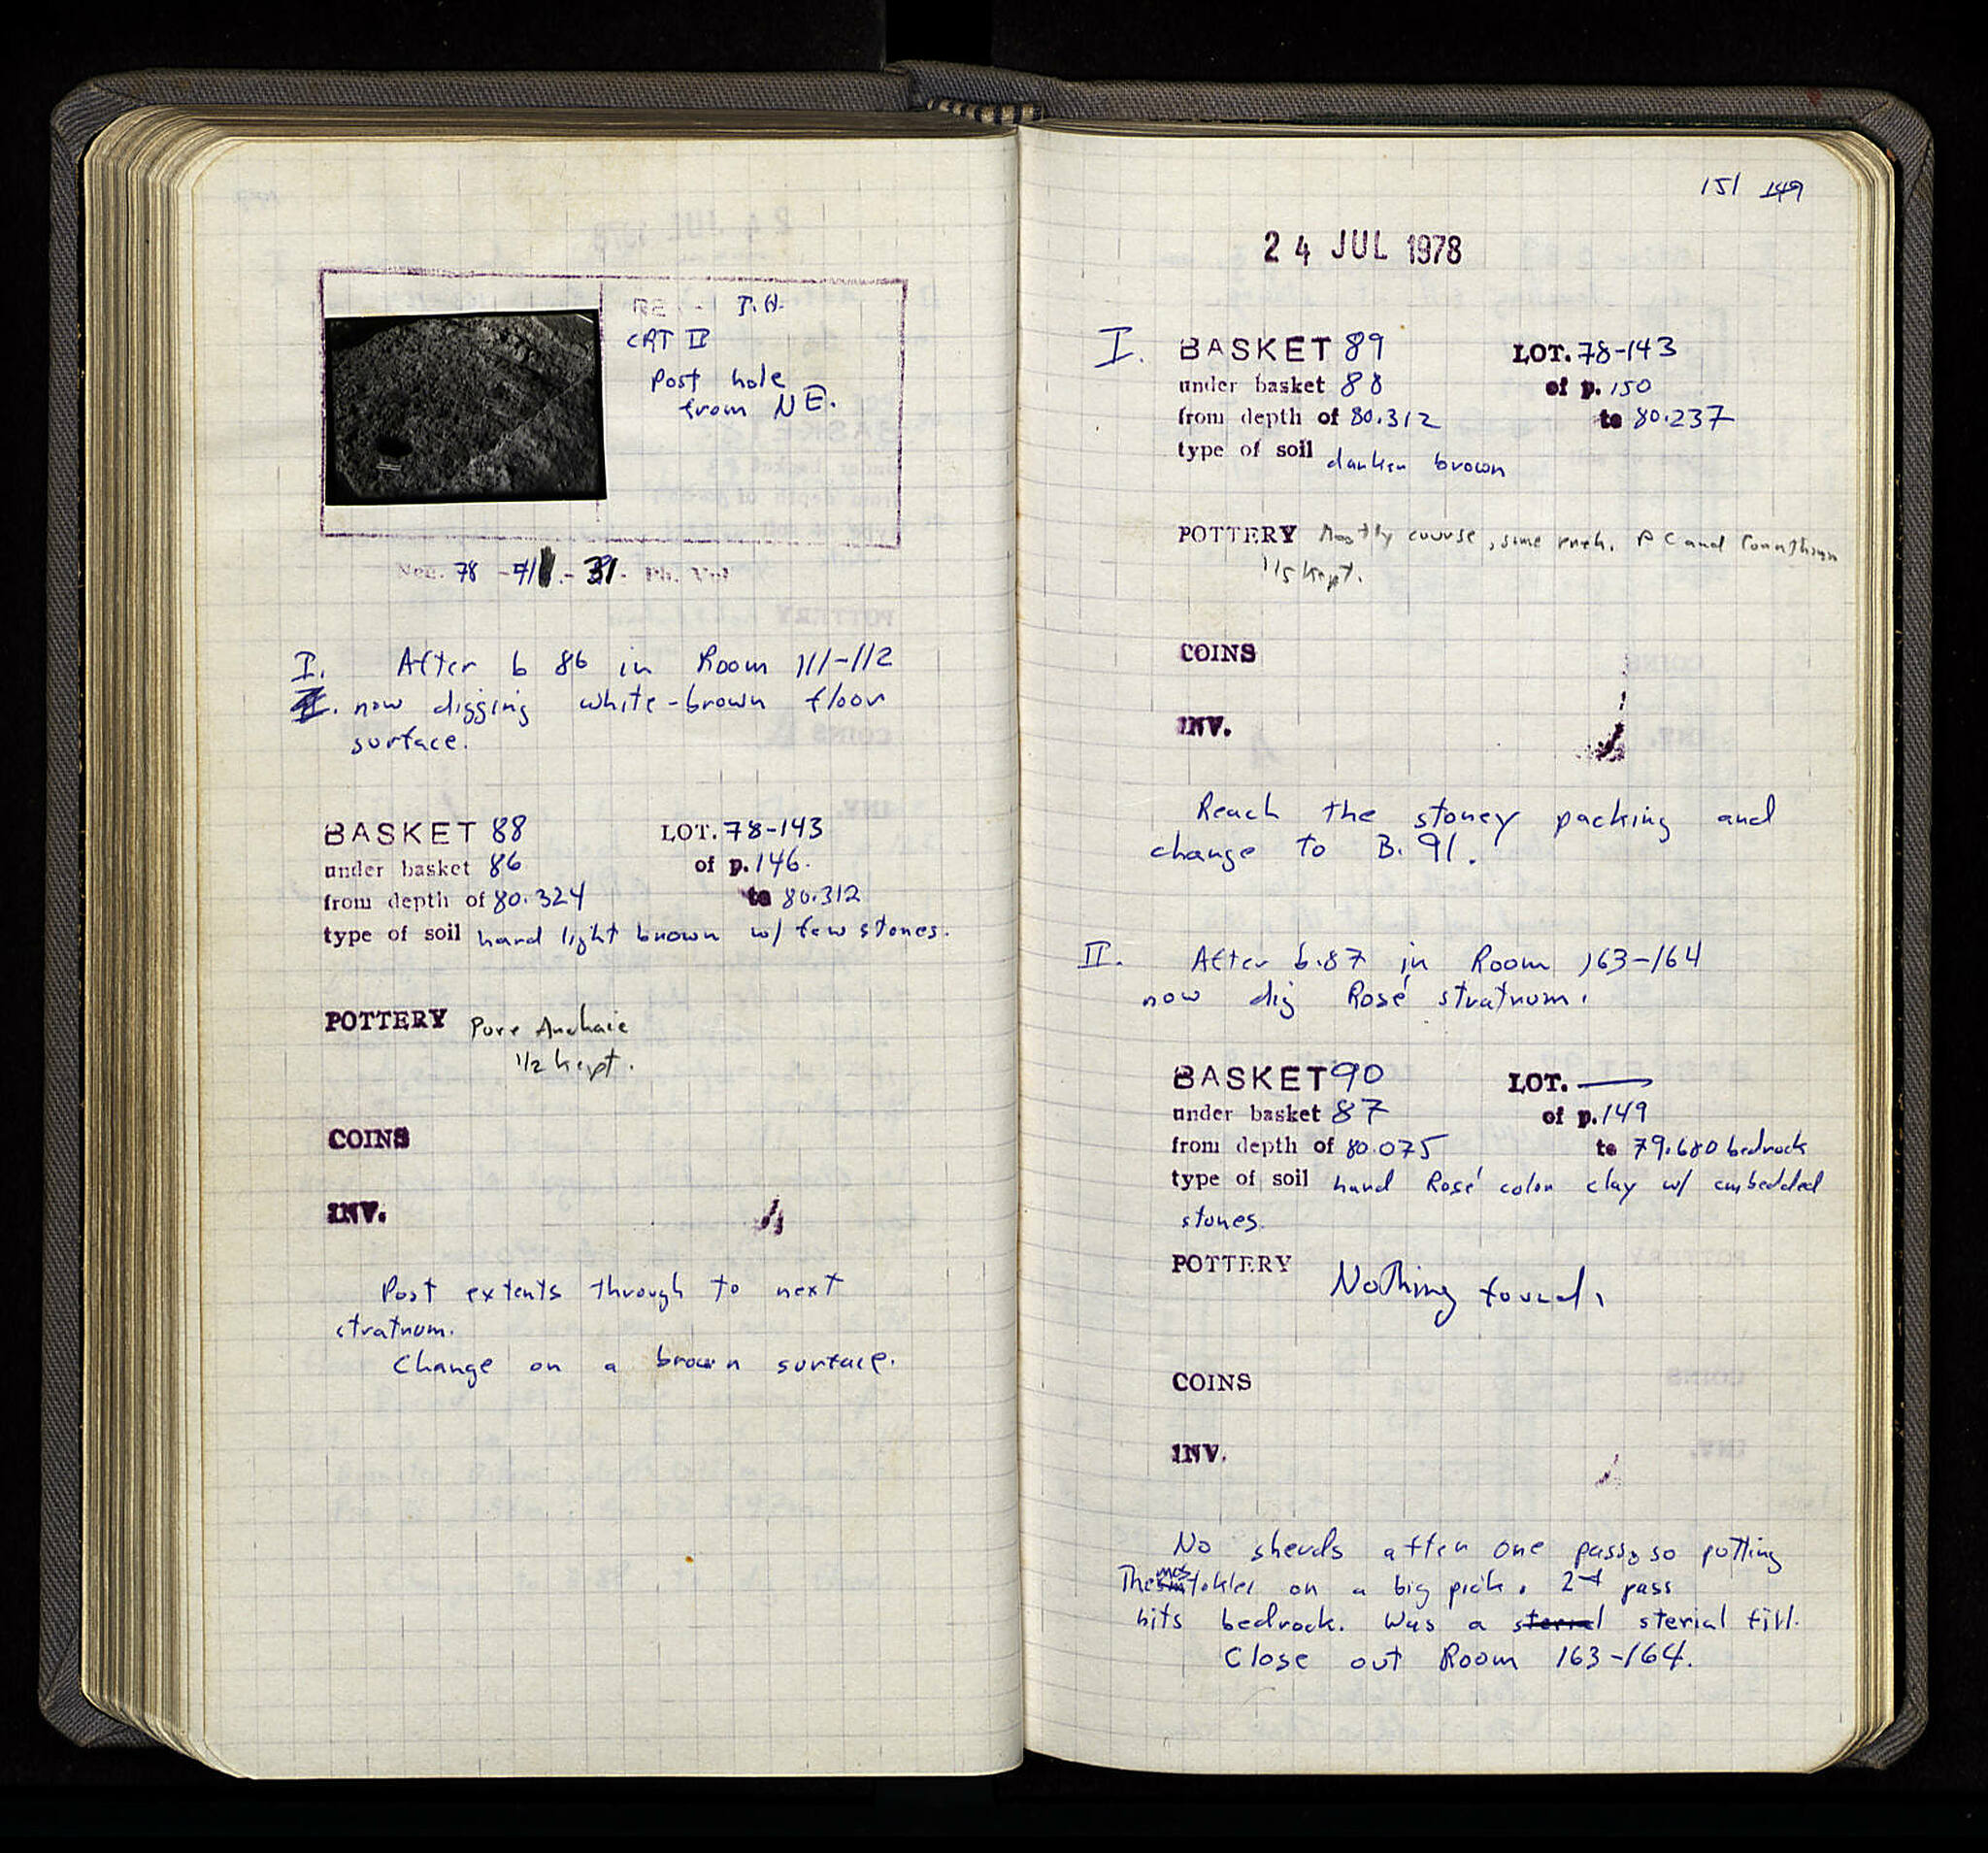 P.H.
CRT II
Post hole
from NE.
Neg. 78 - 71 - 31 - Ph. Vol
I. After b 86 in Room 111-112
now digging white-brown floor
surface.
BASKET 88 LOT. 78-143
under basket 86 of p. 146.
from depth of 80.324 to 80.312
type of soil hard light brown w/ few stones.
POTTERY Pure Archaic
1/2 kept.
COINS
INV.
Post extents through to next
stratum.
Change on a brown surface.
151 149
24 JUL 1978
I. BASKET 89 LOT. 78-143
under basket 88 of p. 150
from depth of 80.312 to 80.237
type of soil darker brown
POTTERY Mostly course, some arch. PC and Corinthian
1/5 kept.
COINS
INV.
Reach the stoney packing and
change to B. 91.
II. After b.87 in Room 163-164
now dig Rosé stratum.
BASKET 90 LOT. —
under basket 87 of p. 149
from depth of 80.075 to 79.680 bedrock
type of soil hard Rosé color clay w/ embedded
stones.
POTTERY Nothing found.
COINS
INV.
No sherds after one pass, so putting
on a big pick. 2nd pass
hits bedrock. Was a sterial sterial fill.
Close out Room 163-164.